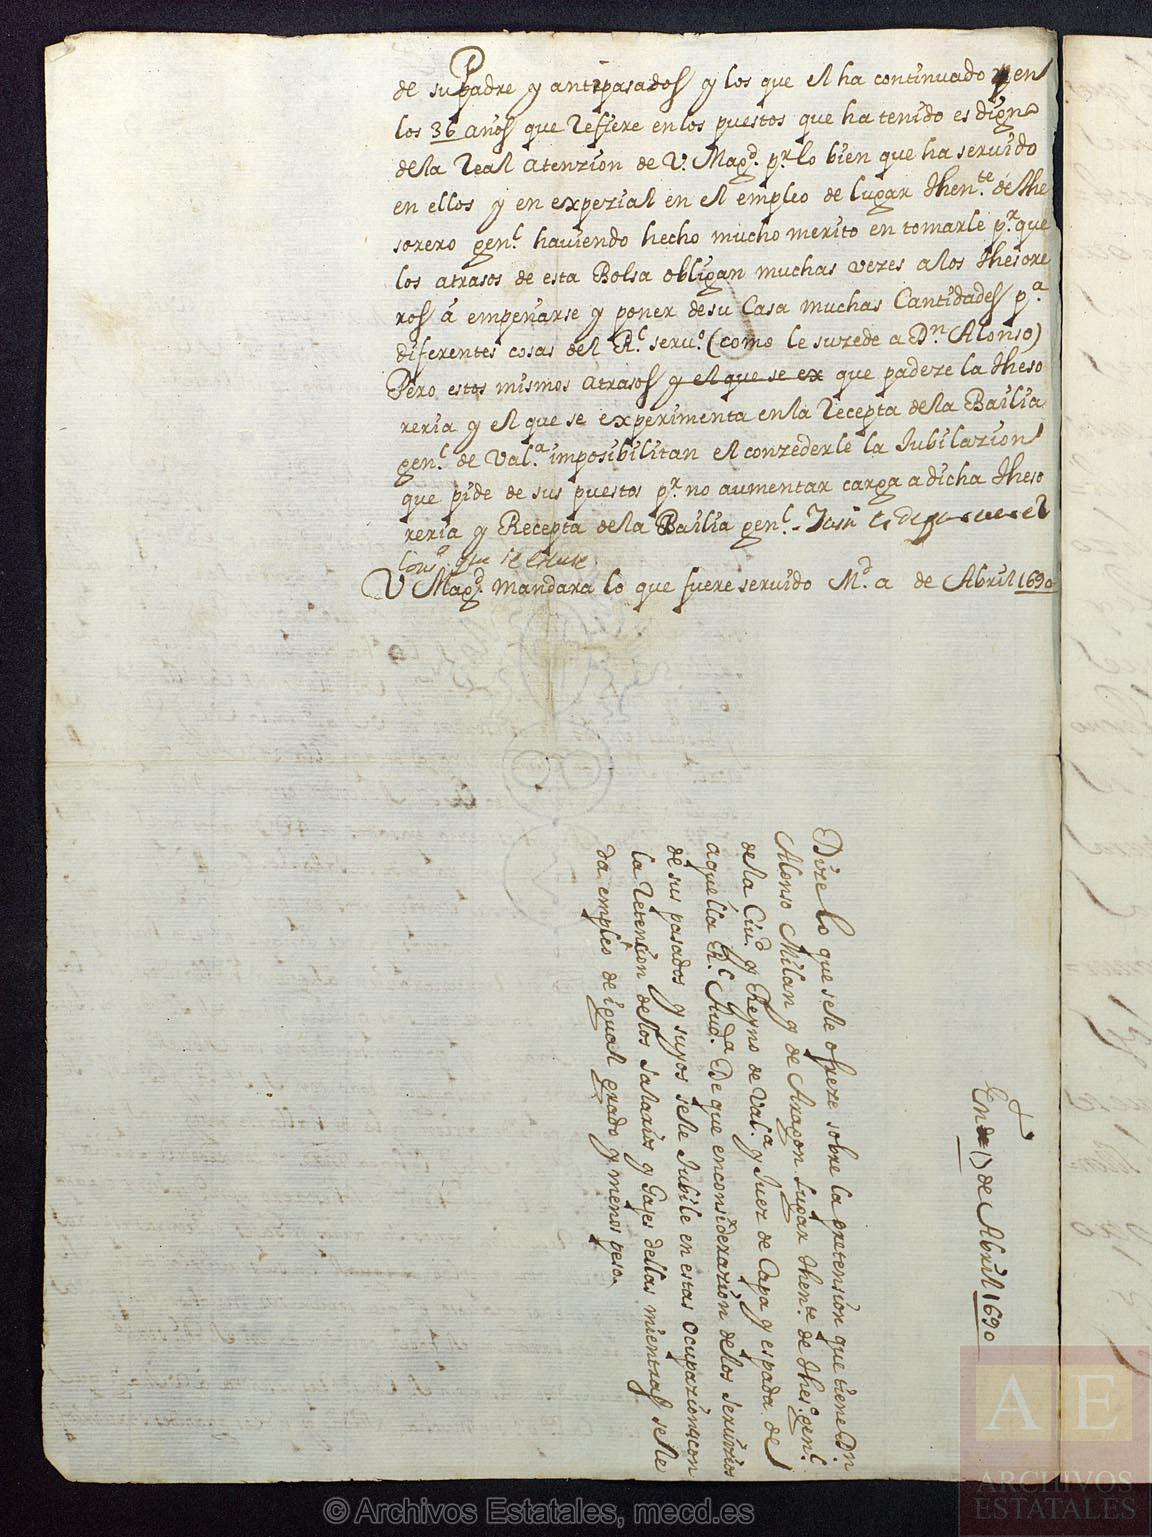 de su padre y antepasados y los que el ha continuado en
los 36 años que refiere en los puestos que ha tenido es digno
de la real atenzion de V. Magd. pr. lo bien que ha seruido
en ellos y en expezial en el empleo de lugar thente. de the
sorero genl. hauiendo hecho mucho merito en tomarle pr. que
los atrasos de esta Bolsa obligan muchas vezes a los thesore
ros á empeñarse y poner de su Casa muchas Cantidades pa.
diferentes cosas del Rl. seruo. (como le suzede a Dn. Alonso)
Pero estos mismos atrasos y el que se ex que padeze la theso
reria y el que se experimenta en la recepta de la Bailia
genl. de Vala. imposibilitan el conzederle la Jubilazion
que pide de sus puestos pr. no aumentar carga a dicha theso
reria y Recepta de la Bailia genl.
V Magd. mandara lo que fuere seruido Md. a de Abril 1690
Dize lo que se le ofreze sobre la pretension que tiene Dn.
Alonso Milan y de Aragon Lugar thente. de theso. genl.
de la Ciud. y Reyno de Vala. y Juez de Capa y espada de
aquella Rl. Auda. De que en considerazion de los seruizios
de sus pasados y suyos se le Jubile en estas ocupaziones con
la retencion de los salarios y Gajes dellas mientras se le
da empleo de igual grado y menos peso.
En de Abril 1690
AE
ARCHIVOS
ESTATALES
© Archivos Estatales, mecd.es